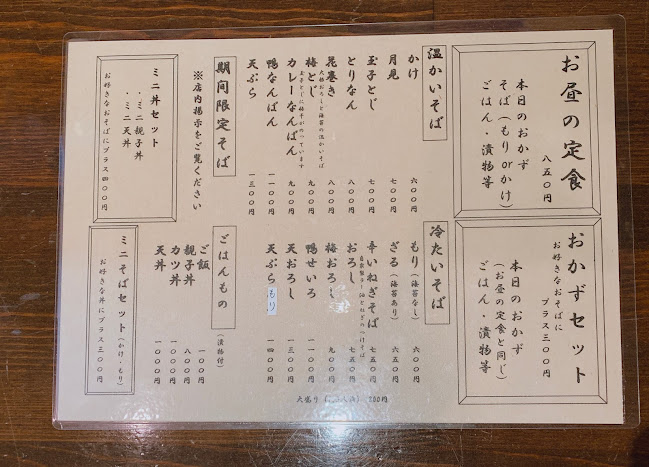 お昼の定食
八五〇円
本日のおかず
そば(もりorかけ)
ごはん・漬物等
おかずセット
お好きなおそばに
プラス三〇〇円
本日のおかず
(お昼の定食と同じ)
ごはん・漬物等
温かいそば
かけ 六〇〇円
月見 七〇〇円
玉子とじ 七〇〇円
とりなん 八〇〇円
花巻き 八〇〇円
梅とじ 九〇〇円
カレーなんばん 九〇〇円
鴨なんばん 一一〇〇円
天ぷら 一三〇〇円
冷たいそば
もり(海苔なし) 六〇〇円
ざる(海苔あり) 六五〇円
辛いねぎそば 七五〇円
おろし 七五〇円
梅おろし 九〇〇円
鴨せいろ 一一〇〇円
天おろし 一三〇〇円
天ぷらもり 一四〇〇円
大盛り 200円
期間限定そば
※店内掲示をご覧ください
ごはんもの
(漬物付)
ご飯 一〇〇円
親子丼 八〇〇円
カツ丼 一〇〇〇円
天丼 一〇〇〇円
ミニ丼セット
・ミニ親子丼
・ミニ天丼
お好きなおそばにプラス四〇〇円
ミニそばセット(かけ・もり)
お好きな丼にプラス三〇〇円